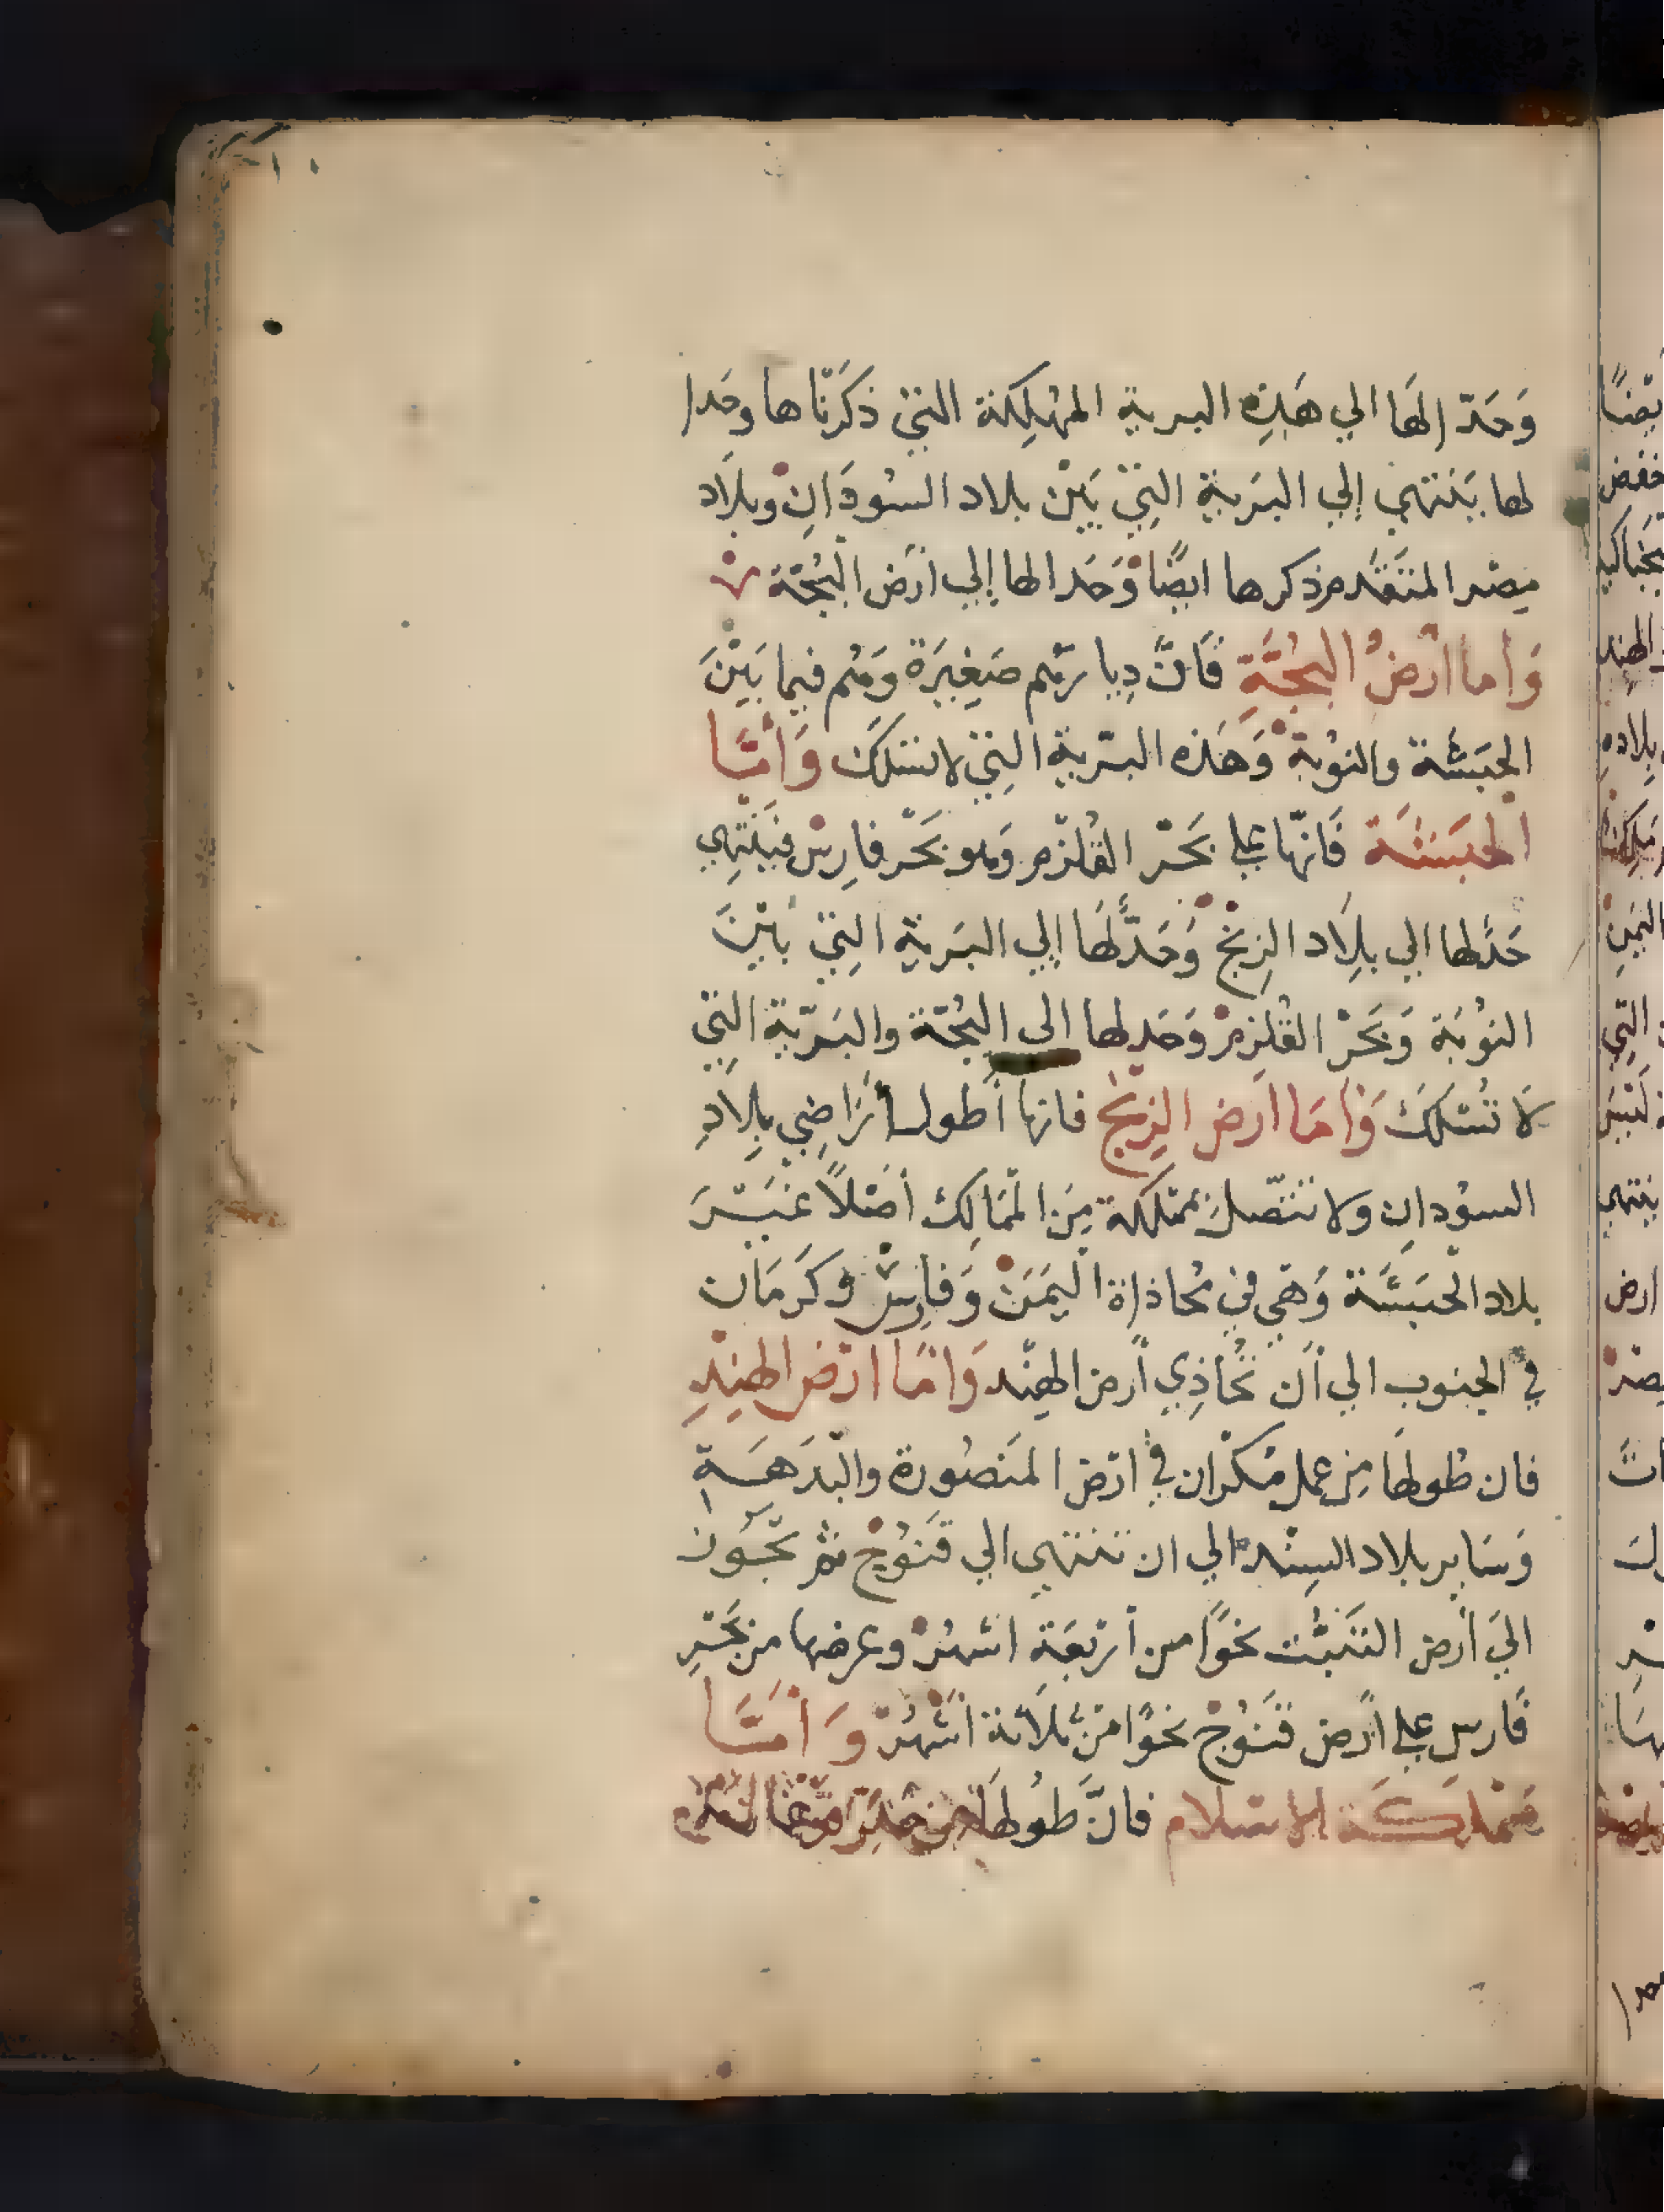 وَحَدّا لهَا الي هَذِه البرية المهْلِكة التي ذكَرْنَاها وحَدا
لها يَنتهي إلي البَرية التِي بَيْن بلاد السُودَانِ وبلَاد
مِصْر المتَقَدم ذكرها ايضًا وَحَدا لها إلي أرَض البُجَّة
وَأما أرْضُ البُجَّةِ فَانَّ دِيارَهُم صَغِيَرة وَهُم فيما بَيْنَ
الحَبَشَة والنوُبة وَهَذه البَرّية التِي لا تسْلَك وَأمَّا
الحَبَشَة فَانّها علي بَحَرْ القُلْزم وَهو بَحَر فارِسْ فيَنتِهي
حَدَّ لها الي بلِاد الزِنْج وَحَدَّ لهَا إلي البَرية التِي بَيْنَ
النُوبَة وَبَحَرْ القُلزِمْ وَحَد لها الى البُجَّة والبَرّية التِي
لَا تُسْلَكَ وَأمَا أرَض الزِنْج فانها أطول أرَاضِي بلِادِ
السوُدانِ ولا تتّصل بمَمْلكة مِنَ المَمَالِك أصْلاً غَيْرَ
بلاد الحَبَشَة وَهَي في مُحَاذاة اليَمَنْ وَفارِسْ وكَرمَان
في الجنوب الي أن تُحَاذِي أرض الهِنْد وَامَّا ارْض الهِنْدِ
فان طُولهَا مِن عمل مُكْرَان في ارْض المَنصُورة والبَدَهَةِ
وَسَاير بلاد السِنْد الي ان تنتهي الي قَنوُج ثم تجَوزْ
اليَ أرض التَبَّت نحوًا من أرْبَعَة اشهُرْ وعرضها من بَحَرِ
فَارس علي أرَض قنَوُجْ نحوًا مَن ثَلَاثة أشْهُرْ وَأمَّا
مَمْلَكَة الاسْلام فانَّ طوُلهَا مِن حَدّ فرغَانة